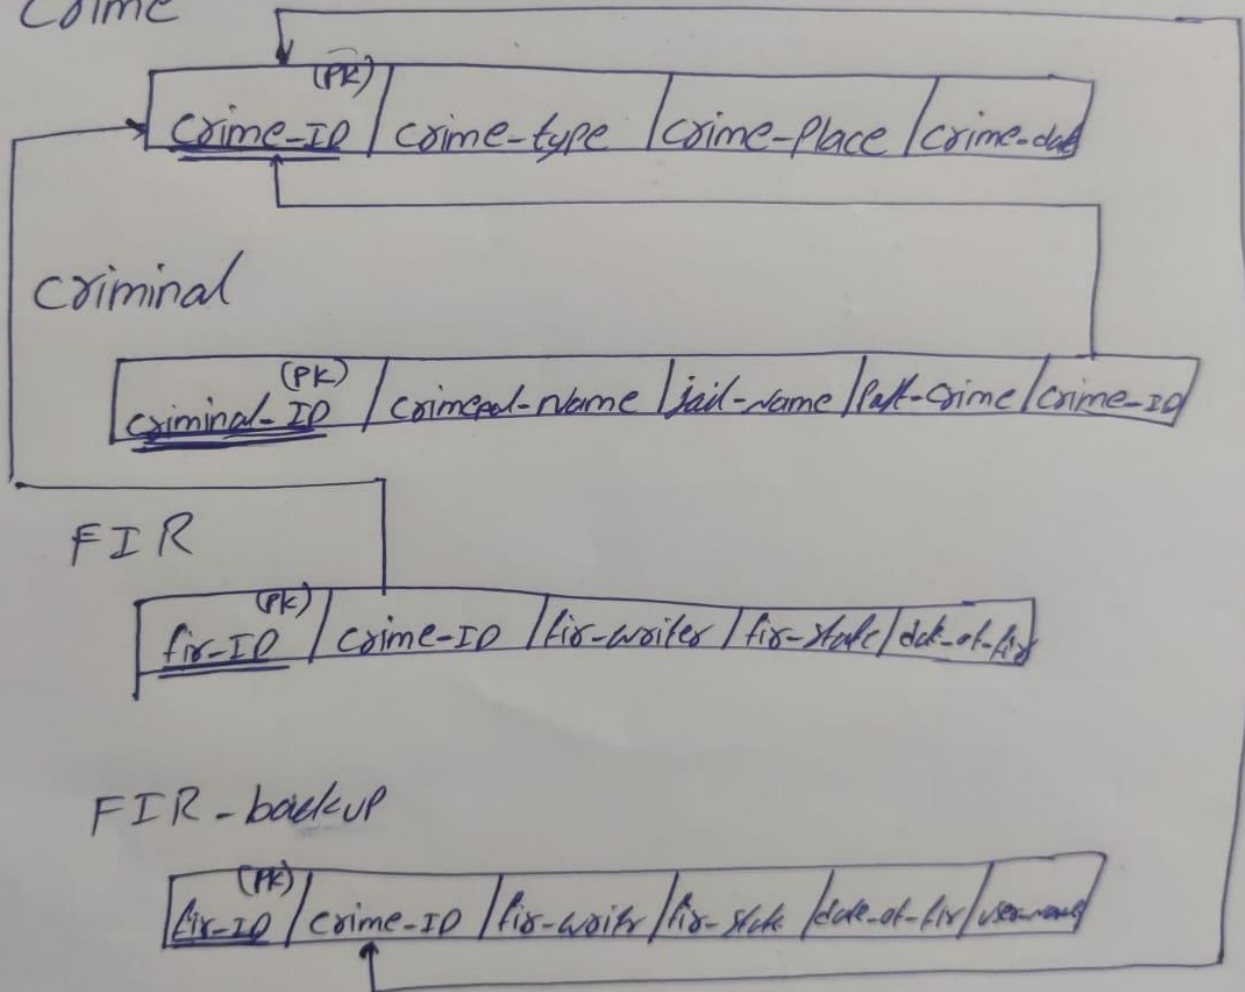 Crime
(PK)
crime-ID crime-type crime-Place crime-date
criminal
(PK)
criminal-ID jail-name crime-ID
FIR
(PK)
fir-ID crime-ID fir-writer fir-state date-of-fir
FIR-backup
(PK)
fir-ID crime-ID fir-writr fir-state date-of-fir